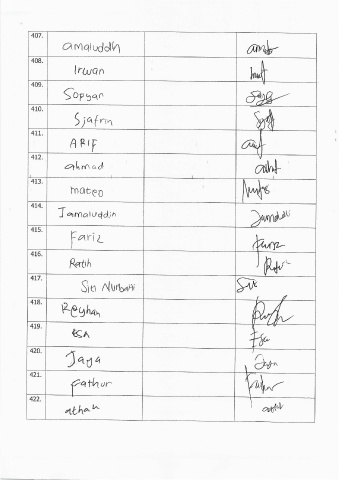 407. amaluddh
408. Irwan
409. Sopyan
410. Sjafrin
411. ARIF
412. ahmad
413. mateo
414. Jamaluddin Jamaludi
415. Fariz Fariz
416. Ratih Ratih
417. Siti Nurbaiti Siti
418. Reyhan
419. ESA Esa
420. Jaya Jaya
421. Fathur Fathur
422. athah